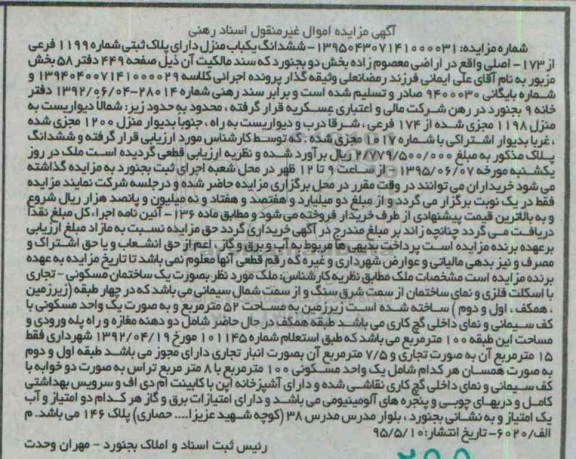 آگهی مزایده اموال غیرمنقول اسناد رهنی
شماره مزایده: ۱۳۹۵۰۴۳۰۷۱۴۱۰۰۰۰۳۱- ششدانگ یکباب منزل دارای پلاک ثبتی شماره ۱۱۹۹ فرعی
از ۱۷۳- اصلی واقع در اراضی معصوم زاده بخش دو بجنورد که سند مالکیت آن ذیل صفحه ۴۴۹ دفتر ۵۸ بخش
مزبور به نام آقای علی ایمانی فرزند رمضانعلی وثیقه گذار پرونده اجرائی کلاسه ۱۳۹۴۰۴۰۰۷۱۴۱۰۰۰۰۲۹
شماره بایگانی ۹۴۰۰۰۳۰ صادر و تسلیم شده است و برابر سند رهنی شماره ۲۸۰۱۴-۱۳۹۲/۰۶/۰۴ دفتر
خانه ۹ بجنورد در رهن شرکت مالی و اعتباری عسکریه قرار گرفته ، محدود به حدود زیر: شمالا دیواریست به
منزل ۱۱۹۸ مجزی شده از ۱۷۴ فرعی ، شرقا درب و دیواریست به راه ، جنوبا بدیوار منزل ۱۲۰۰ مجزی شده
، غربا بدیوار اشتراکی با شماره ۱۰۱۷ مجزی شده . که توسط کارشناس مورد ارزیابی قرار گرفته و ششدانگ
پلاک مذکور به مبلغ ۲/۷۷۹/۵۰۰/۰۰۰ ریال برآورد شده و نظریه ارزیابی قطعی گردیده است ملک در روز
یکشنبه مورخه ۱۳۹۵/۰۶/۰۷ - از ساعت ۹ تا ۱۲ ظهر در محل شعبه اجرای ثبت بجنورد به مزایده گذاشته
می شود خریداران می توانند در وقت مقرر در محل برگزاری مزایده حاضر شده و در جلسه شرکت نمایند مزایده
فقط در یک نوبت برگزار می گردد و از مبلغ دو میلیارد و هفتصد و هفتاد و نه میلیون و پانصد هزار ریال شروع
و به بالاترین قیمت پیشنهادی از طرف خریدار فروخته می شود و مطابق ماده ۱۳۶- آئین نامه اجراء کل مبلغ نقداً
دریافت می گردد چنانچه زائد بر مبلغ مندرج در آگهی خریداری گردد حق مزایده نسبت به مازاد مبلغ ارزیابی
برعهده برنده مزایده است پرداخت بدیهی ها مربوط به آب و برق و گاز ، اعم از حق انشعاب و یا حق اشتراک و
مصرف و نیز بدهی مالیاتی و عوارض شهرداری و غیره که رقم قطعی آنها معلوم نمی باشد تا تاریخ مزایده به عهده
برنده مزایده است مشخصات ملک مطابق نظریه کارشناس: ملک مورد نظر بصورت یک ساختمان مسکونی - تجاری
با اسکلت فلزی و نمای ساختمان از سمت شرق سنگ و از سمت شمال سیمانی می باشد که در چهار طبقه (زیرزمین
، همکف ، اول و دوم ) ساخته شده است زیرزمین به مساحت ۵۲ مترمربع و به صورت یک واحد مسکونی با
کف سیمانی و نمای داخلی گچ کاری می باشد طبقه همکف در حال حاضر شامل دو دهنه مغازه و راه پله ورودی و
مساحت این طبقه ۱۰۰ مترمربع می باشد که طبق استعلام شماره ۱۰۱۱۴۵ مورخ ۱۳۹۲/۰۴/۱۹ شهرداری فقط
۱۵ مترمربع آن به صورت تجاری و ۷/۵ مترمربع آن بصورت انبار تجاری دارای مجوز می باشد طبقه اول و دوم
به صورت همسان هر کدام شامل یک واحد مسکونی ۱۰۰ مترمربع با ۸ متر مربع تراس به صورت دو خوابه با
کف سیمانی و نمای داخلی گچ کاری نقاشی شده و دارای آشپزخانه اپن با کابینت ام دی اف و سرویس بهداشتی
کامل و دربهای چوبی و پنجره های آلومینیومی می باشد و دارای امتیازات برق و گاز هر کدام دو امتیاز و آب
یک امتیاز و به نشانی بجنورد ، بلوار مدرس مدرس ۳۸ (کوچه شهید عزیزا.... حصاری) پلاک ۱۴۶ می باشد. م
الف/۶۰۲۰- تاریخ انتشار: ۹۵/۵/۱۰
رئیس ثبت اسناد و املاک بجنورد - مهران وحدت